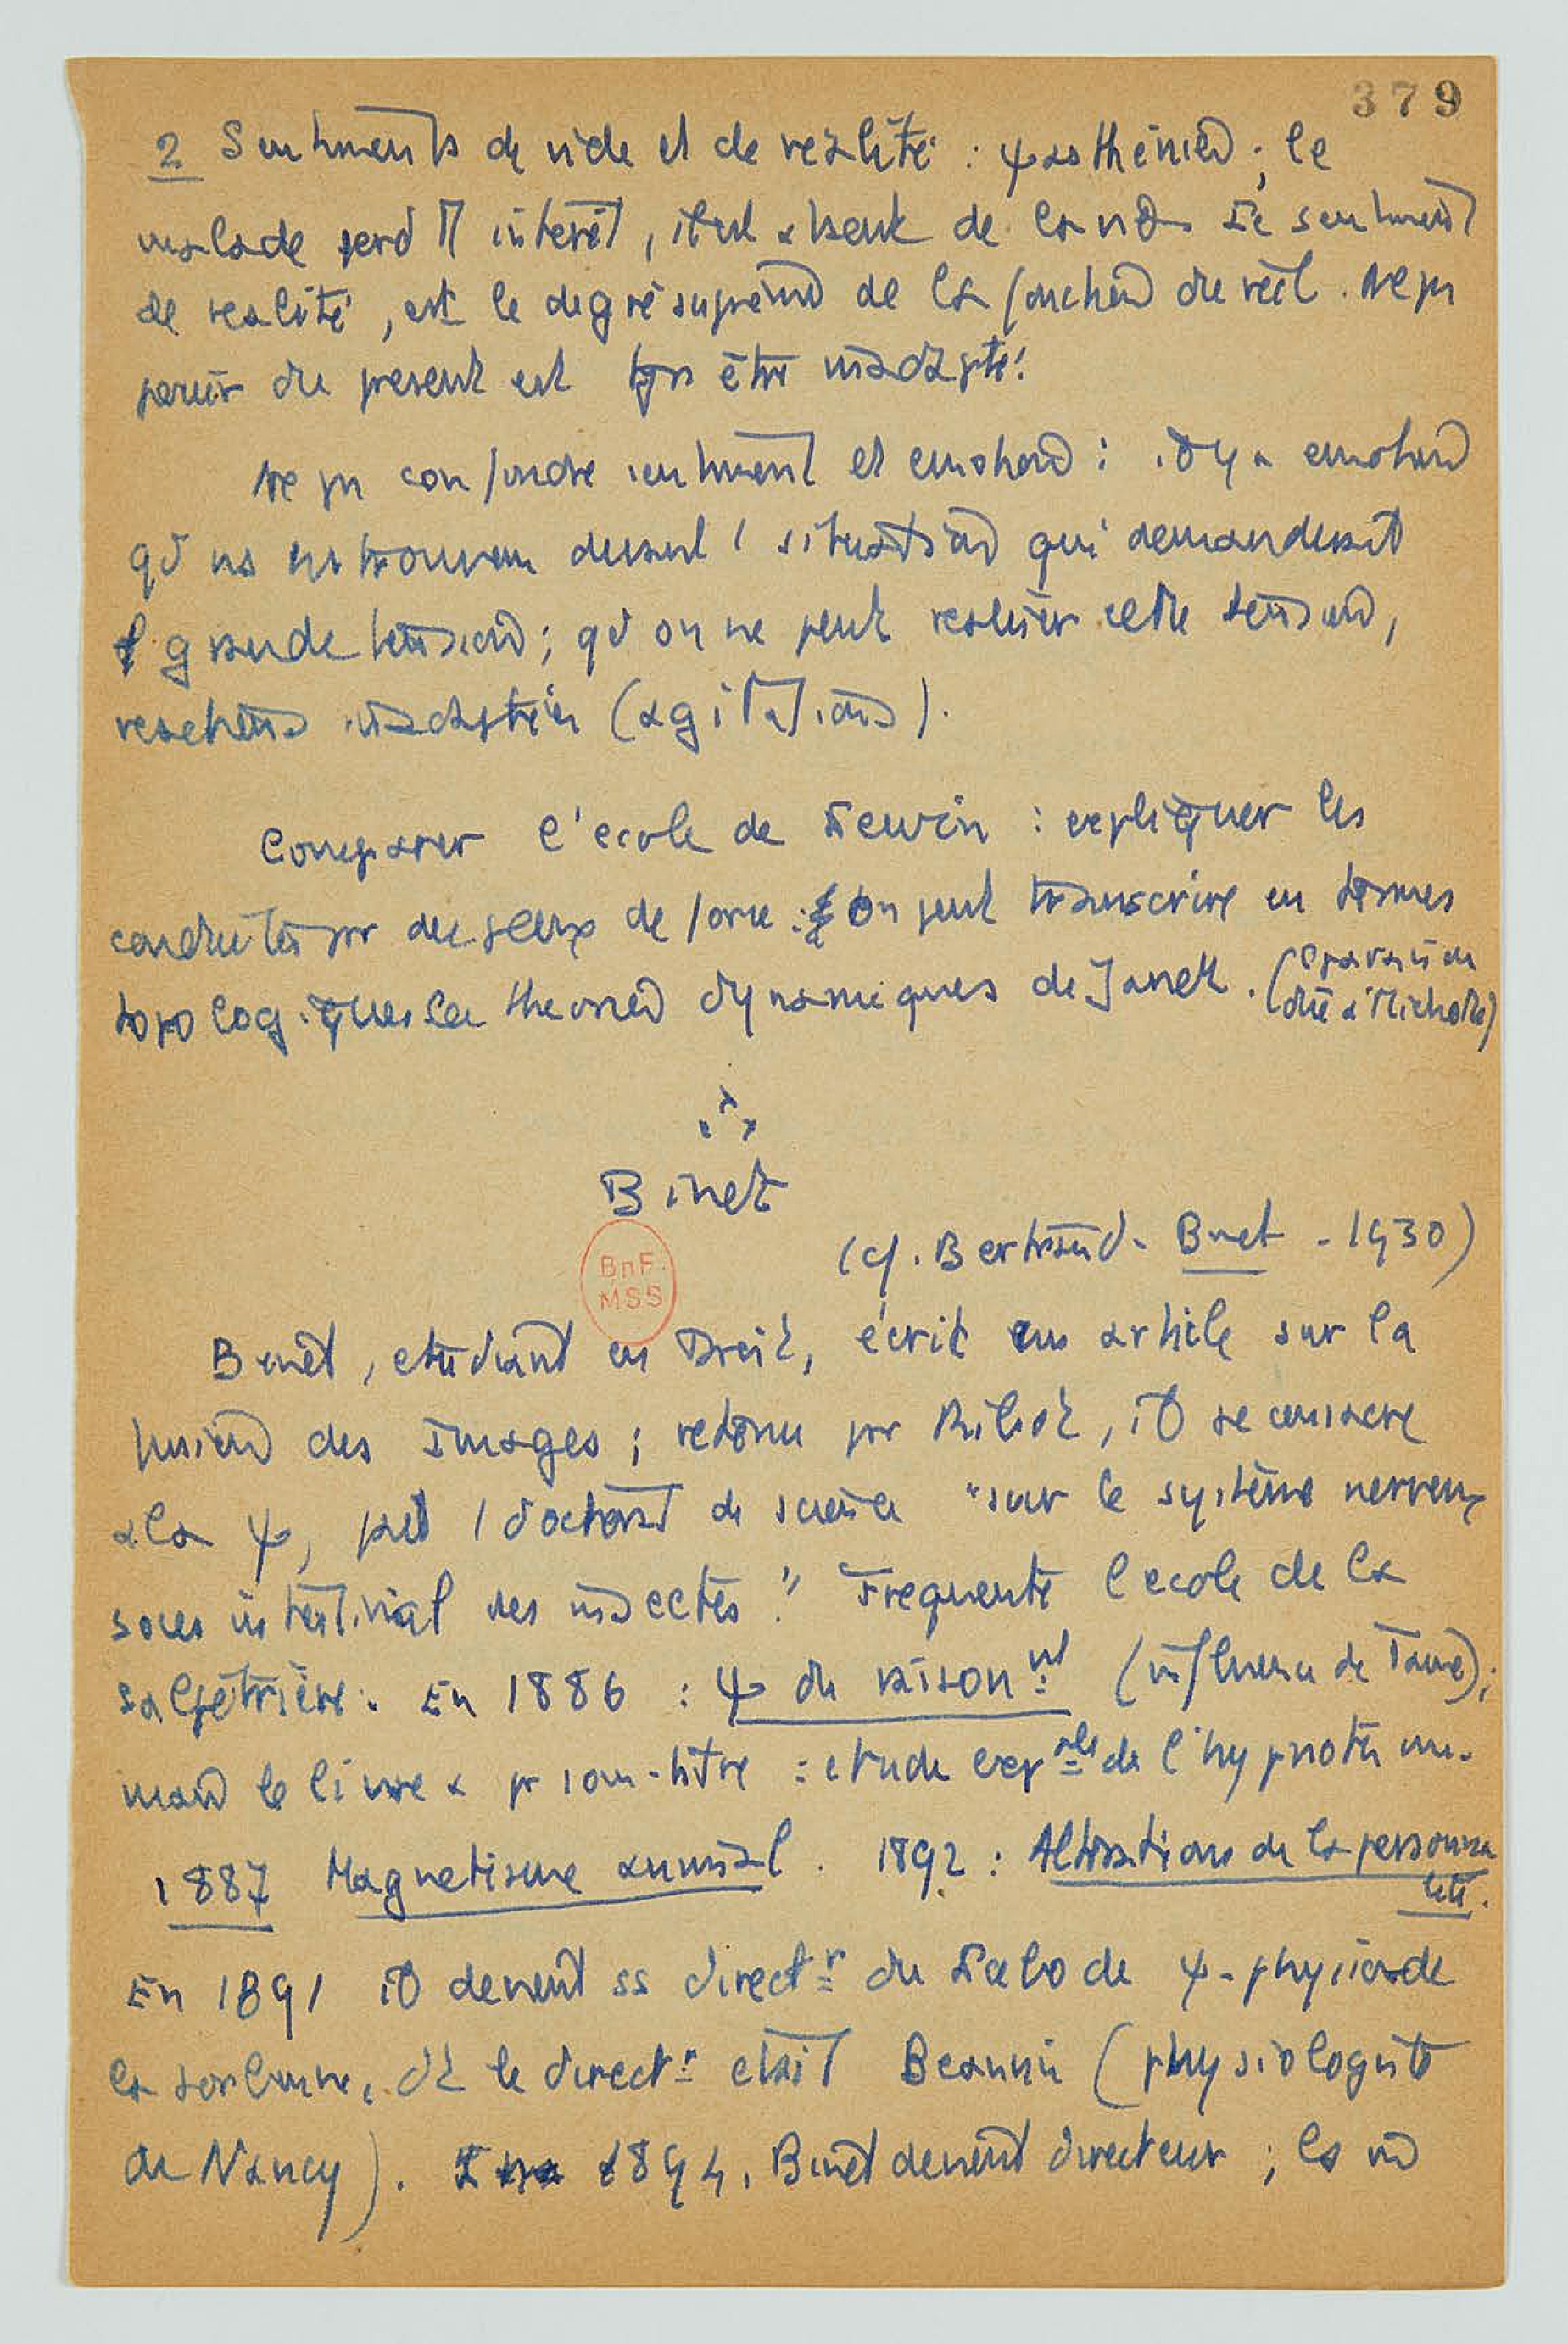 379
2 Sentiments de vide et de réalité : ψasthénied ; le
malade perd intérêt, il est absent de la vie Le sentiment
de réalité, est le degré suprême de la fonction du réel. Ne pas
jouir du présent est être inadapté.
Ne pas confondre sentiment et emotion : il y a emotion
qd ns ns trouvons devant 1 situation qui demanderait
grande tension ; qd on ne peut réaliser cette tension,
reactions inadaptées (agitations).
Comparer l'ecole de Lewin : expliquer les
conduites par des jeux de force : On peut transcrire en termes
topologiques les theories dynamiques de Janet. (
due à Michotte)
Binet
BnF
MSS
(cf. Bertrand - Binet - 1930)
Binet, etudiant en Droit, écrit un article sur la
fusion des Images ; retenu par Ribot, il se consacre
a la ψ, puis 1 doctorat de science "sur le système nerveux
sous intestinal des insectes". Frequente l'ecole de la
Salpêtrière. En 1886 : ψ du raisonnt (influence de Taine) ;
mais le livre a pr sous-titre : etude exples de l'hypnotisme.
1887 Magnetisme animal. 1892 : Altérations de la personna
lité.
En 1891 il devient ss directr du Labo de ψ-physio de
la Sorbonne, dt le directr etait Beaunis (physiologiste
de Nancy). 1894, Binet devient directeur ; la